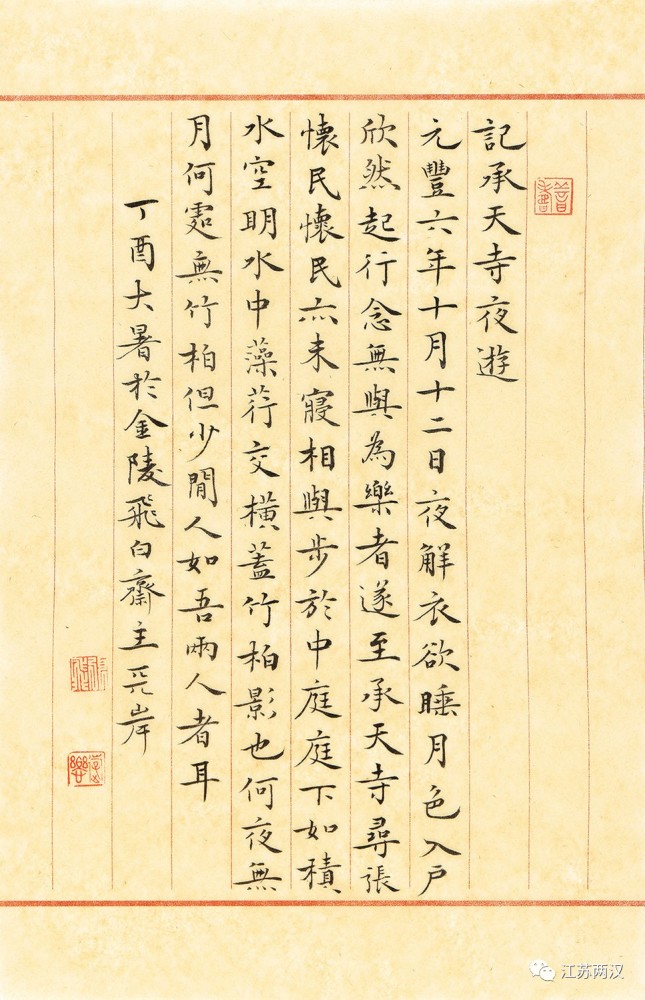 記承天寺夜遊
元豐六年十月十二日夜解衣欲睡月色入戶
欣然起行念無與為樂者遂至承天寺尋張
懷民懷民亦未寢相與步於中庭庭下如積
水空明水中藻荇交橫蓋竹柏影也何夜無
月何處無竹柏但少閒人如吾兩人者耳
丁酉大暑於金陵飛白齋主岸
江苏两汉